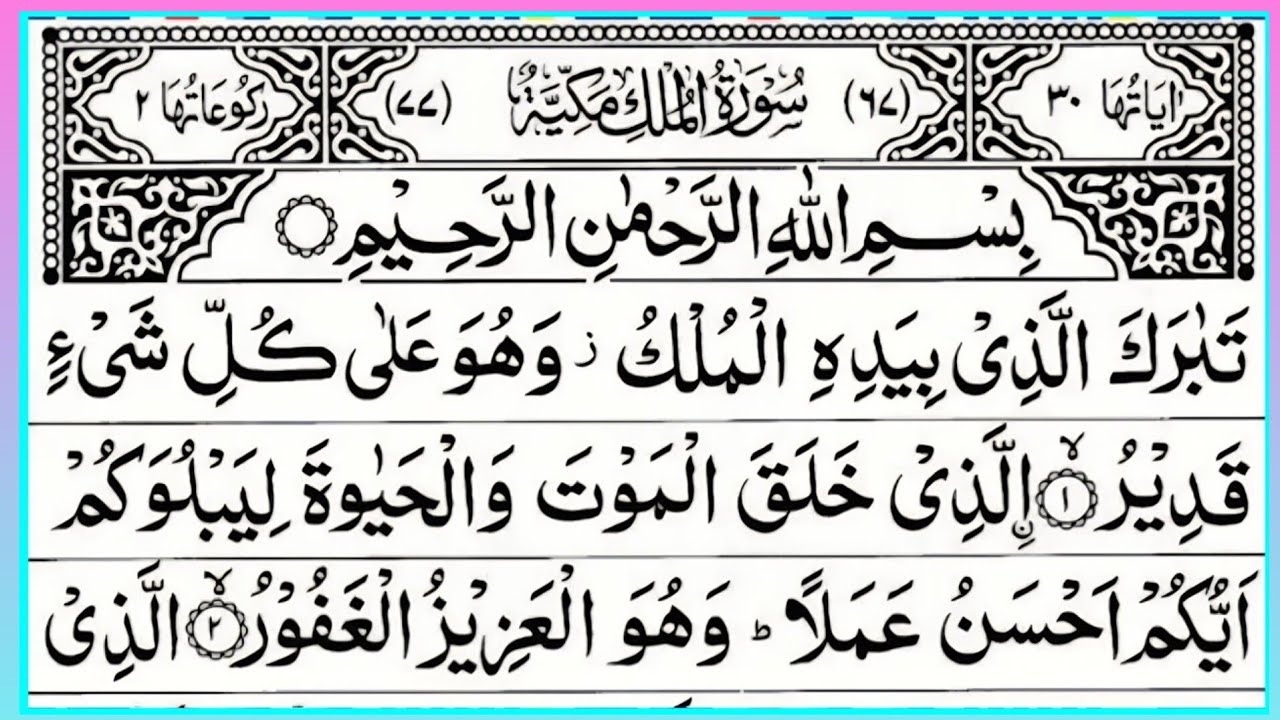 اٰیَاتُهَا ٣٠ (٦٧) سُوْرَةُ الْمُلْكِ مَكِّیَّةٌ (٧٧) رُكُوْعَاتُهَا ٢
بِسْمِ اللّٰهِ الرَّحْمٰنِ الرَّحِیْمِ
تَبٰرَكَ الَّذِیْ بِیَدِهِ الْمُلْكُ ز وَهُوَ عَلٰی كُلِّ شَیْءٍ
قَدِیْرُ ۙ ﴿١﴾ اِۨلَّذِیْ خَلَقَ الْمَوْتَ وَالْحَیٰوةَ لِیَبْلُوَكُمْ
اَیُّكُمْ اَحْسَنُ عَمَلًا ؕ وَهُوَ الْعَزِیْزُ الْغَفُوْرُ ۙ ﴿٢﴾ الَّذِیْ